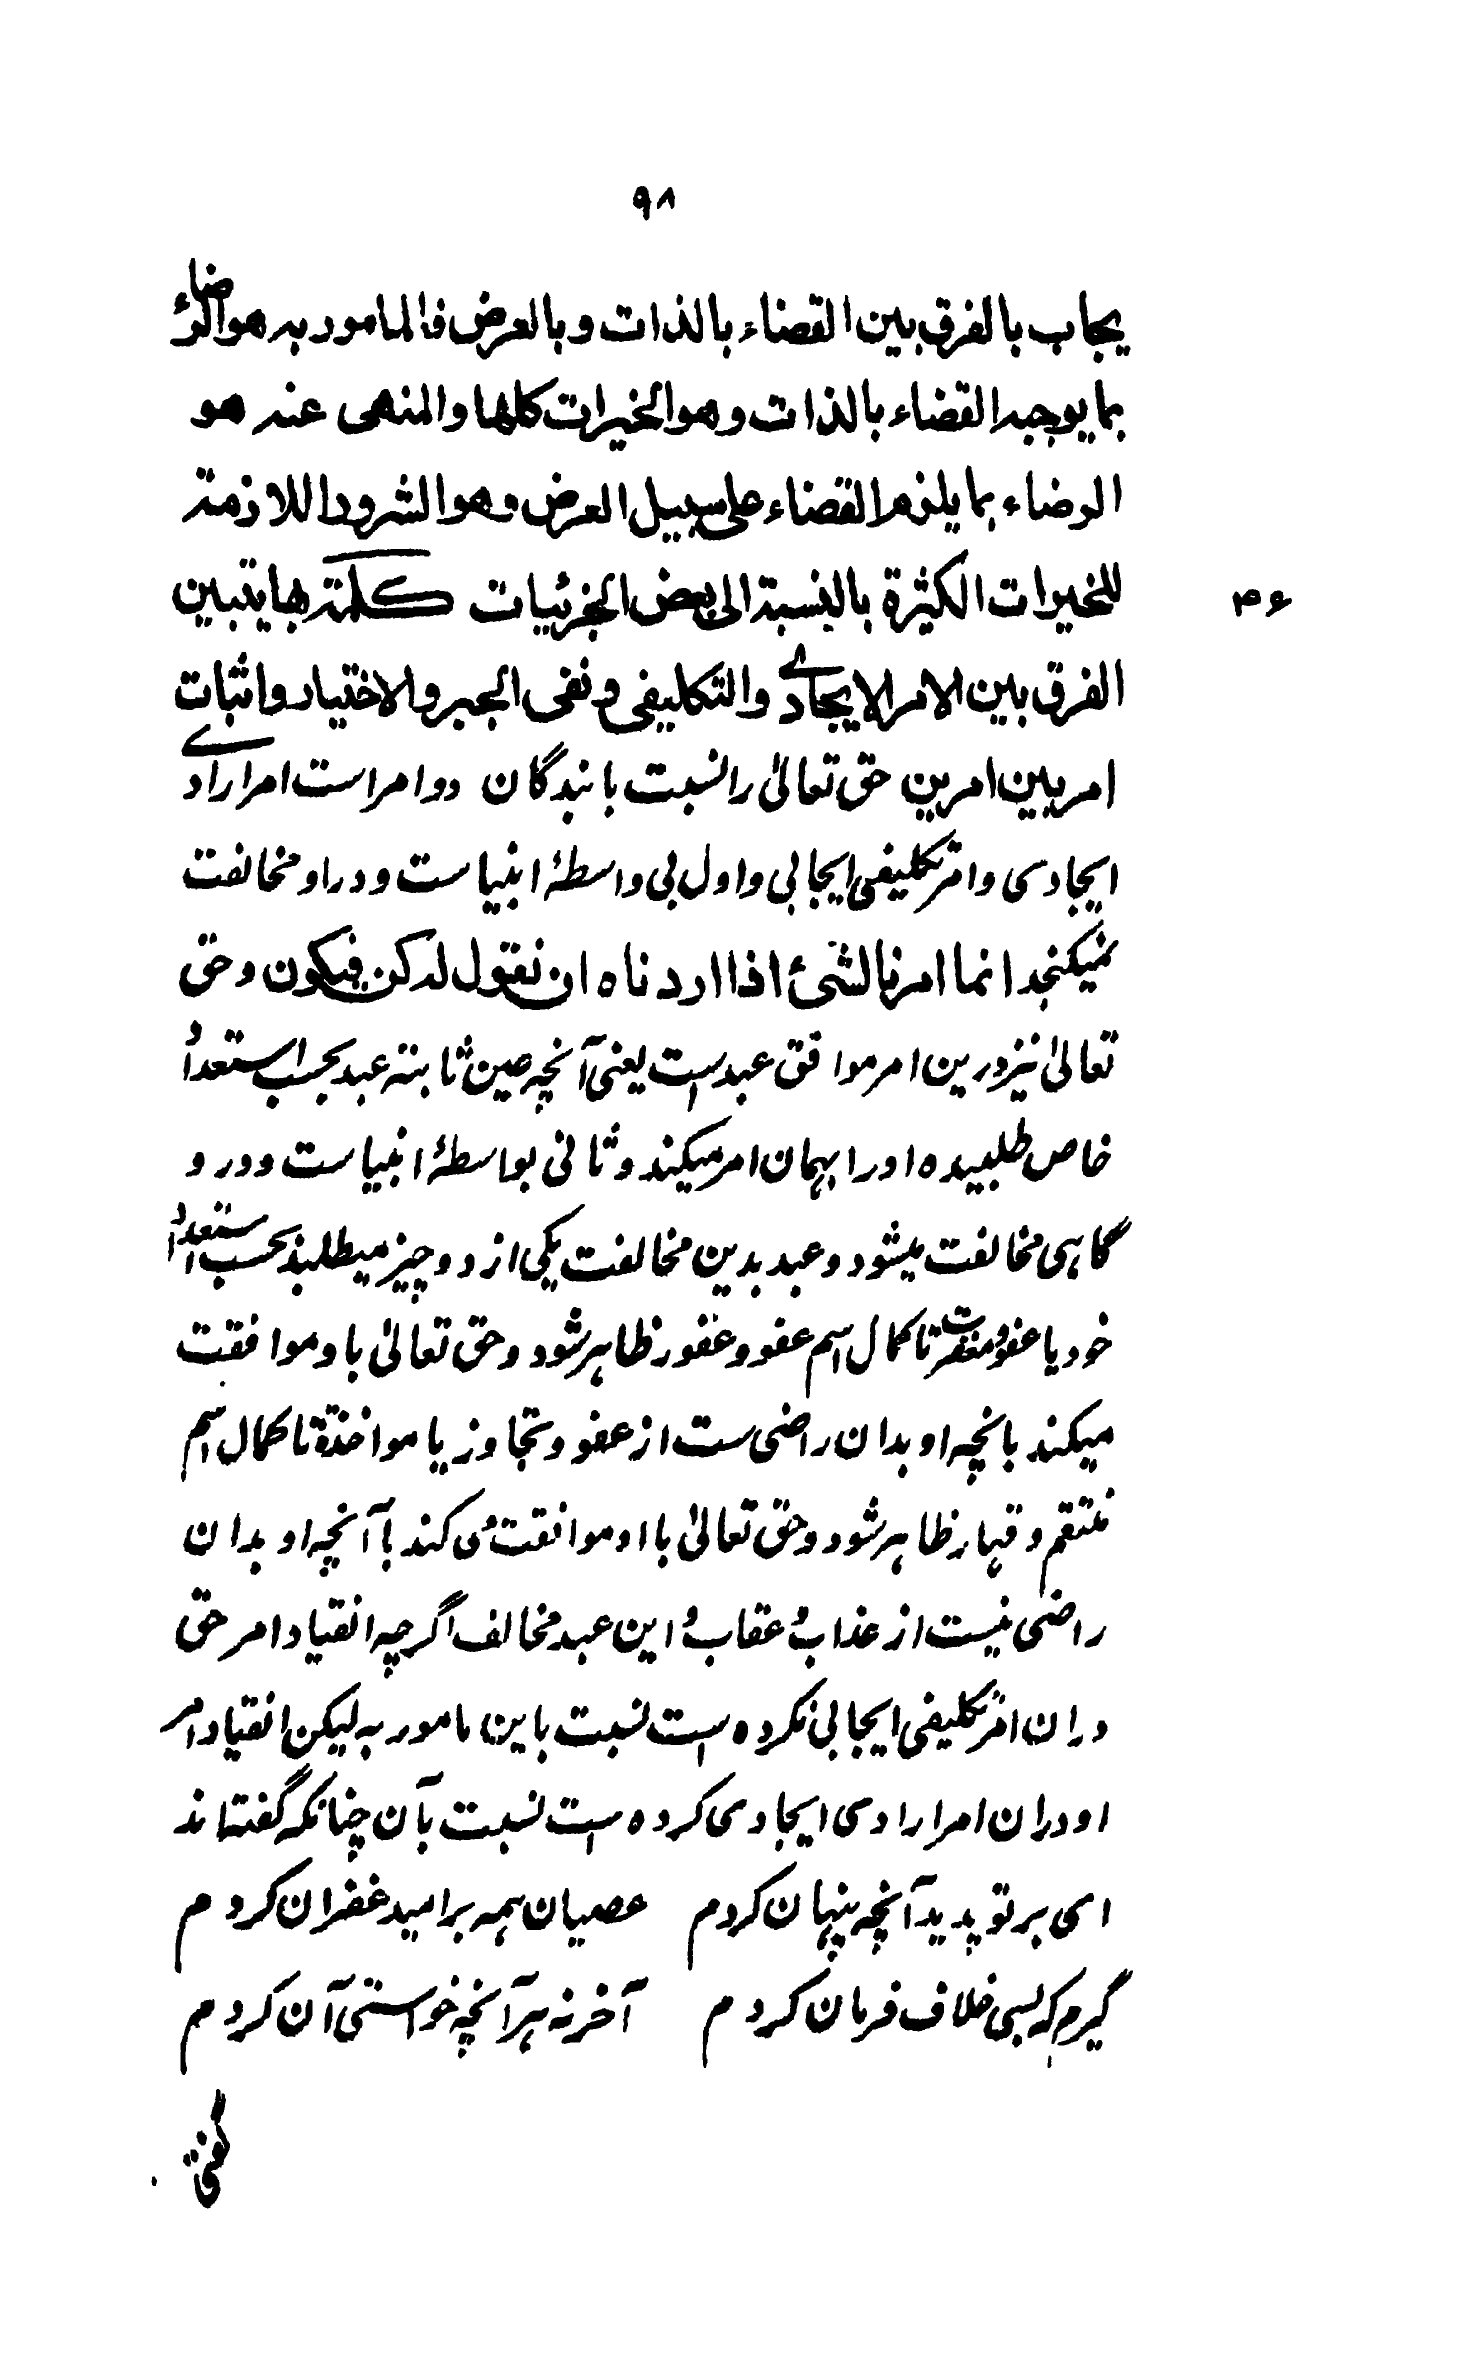 ۹۸
یجاب بالفرق بین القضاء بالذات وبالعرض فالمامور به هو الرضاء
بما یوجبه القضاء بالذات وهو الخیرات کلها والمنهی عنه هو
الرضاء بما یلزم القضاء علی سبیل العرض وهو الشرور اللازمة
للخیرات الکثیرة بالنسبة الی بعض الجزئیات کلمة بها یتبین
۴۶
الفرق بین الامر الایجادی والتکلیفی ونفی الجبر والاختیار واثبات
امر بین امرین حق تعالیٰ را نسبت با بندگان دو امر است امر ارادی
ایجادی و امر تکلیفی ایجابی و اول بی واسطۂ انبیاست و در او مخالفت
نمیگنجد انما امرنا لشئ اذا اردناه ان نقول له کن فیکون و حق
تعالیٰ نیز درین امر موافق عبد است یعنی آنچه عین ثابتہ عبد بحسب استعداد
خاص طلبیده او را بهمان امر میکند و ثانی بواسطۂ انبیاست و در و
گاهی مخالفت میشود و عبد بدین مخالفت یکی از دو چیز میطلبد بحسب استعداد
خود یا عفو و مغفرت تا کمال اسم عفو و غفور ظاهر شود و حق تعالیٰ با و موافقت
میکند بانچه او بدان راضی ست از عفو و تجاوز یا مواخذة تا کمال اسم
منتقم و قهار ظاهر شود و حق تعالیٰ با او موافقت می کند با آنچه او بدان
راضی نیست از عذاب و عقاب و این عبد مخالف اگرچه انقیاد امر حق
دران امر تکلیفی ایجابی نکرده است نسبت باین مامور به لیکن انقیاد امر
او دران امر ارادی ایجادی کرده است نسبت بآن چنانکه گفته اند
ای بر تو پدید آنچه پنهان کردم عصیان همه بر امید غفران کردم
گیرم که بسی خلاف فرمان کردم آخر نه هر آنچه خواستی آن کردم
گفتی